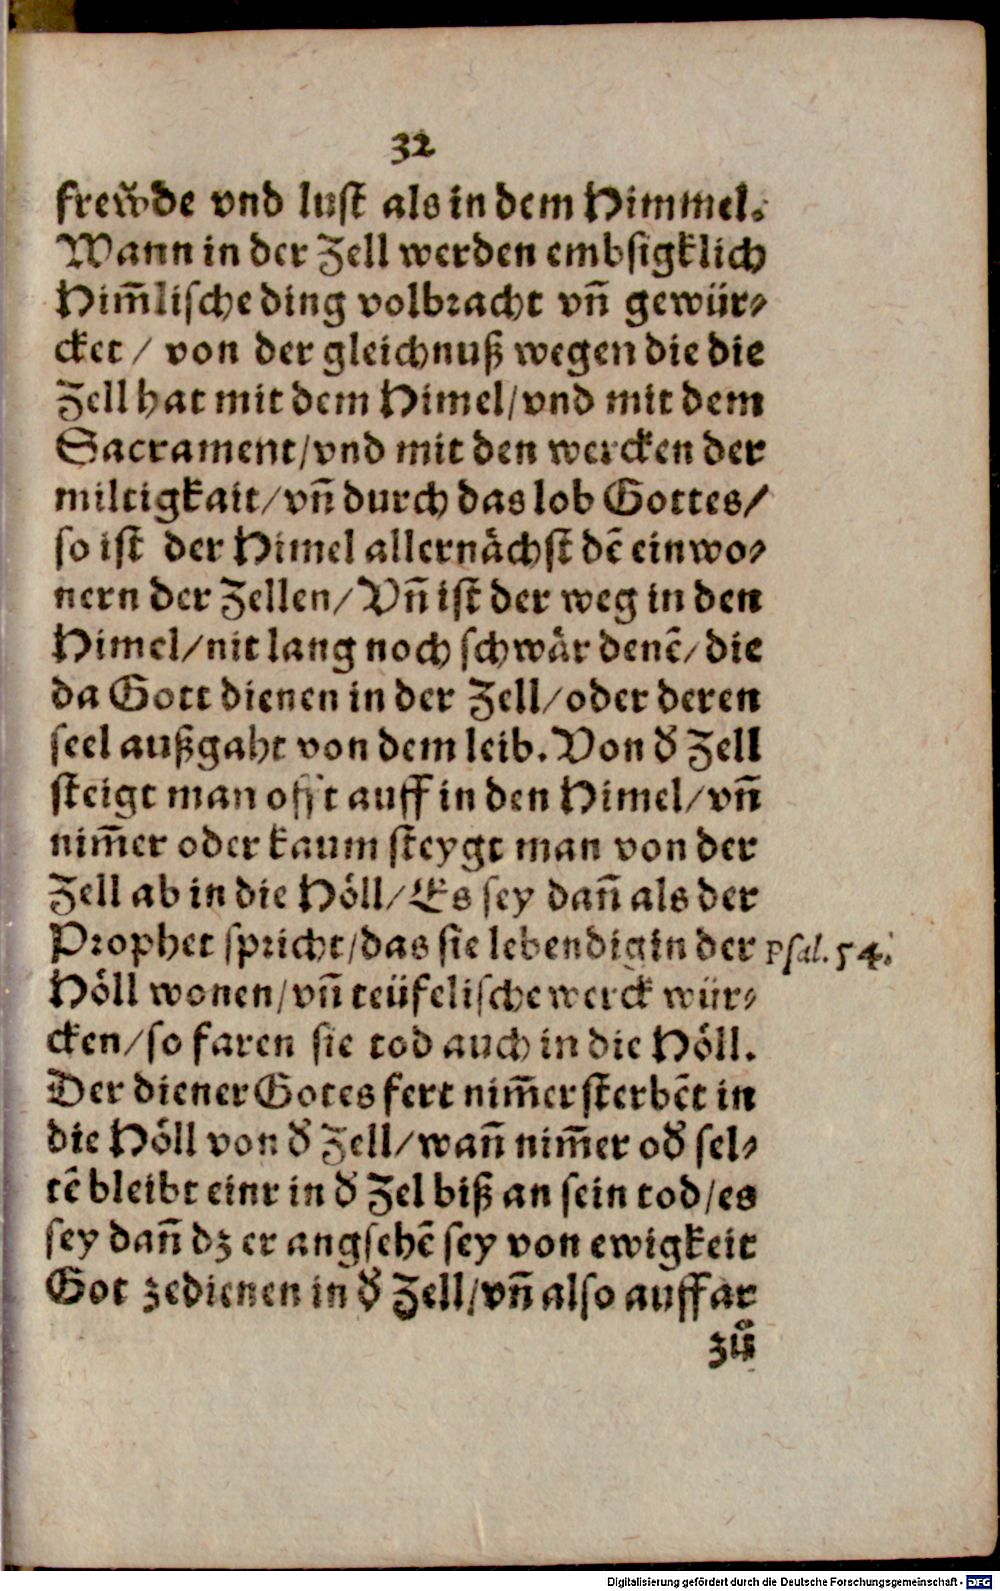 32
freẘde vnd lust als in dem Himmel.
Wann in der Zell werden embsigklich
Him̃lische ding volbracht vñ gewür-
cket / von der gleichnuß wegen die die
Zell hat mit dem Himel/vnd mit dem
Sacrament/vnd mit den wercken der
miltigkait/vñ durch das lob Gottes/
so ist der Himel allernåchst dẽ einwo-
nern der Zellen/Vñ ist der weg in den
Himel/nit lang noch schwår denẽ/die
da Gott dienen in der Zell/oder deren
seel außgaht von dem leib. Von đ Zell
steigt man offt auff in den Himel/vñ
nim̃er oder kaum steygt man von der
Zell ab in die Höll/Es sey dañ als der
Prophet spricht/das sie lebendig in der Psal. 54.
Höll wonen/vñ teüfelische werck wür-
cken/so faren sie tod auch in die Höll.
Der diener Gotes fert nim̃er sterbẽt in
die Höll von đ Zell/wañ nim̃er ođ sel-
tẽ bleibt einr in đ Zel biß an sein tod/es
sey dañ dz er angsehẽ sey von ewigkeit
Got zedienen in đ Zell/vñ also auffar
zů
Digitalisierung gefördert durch die Deutsche Forschungsgemeinschaft - DFG